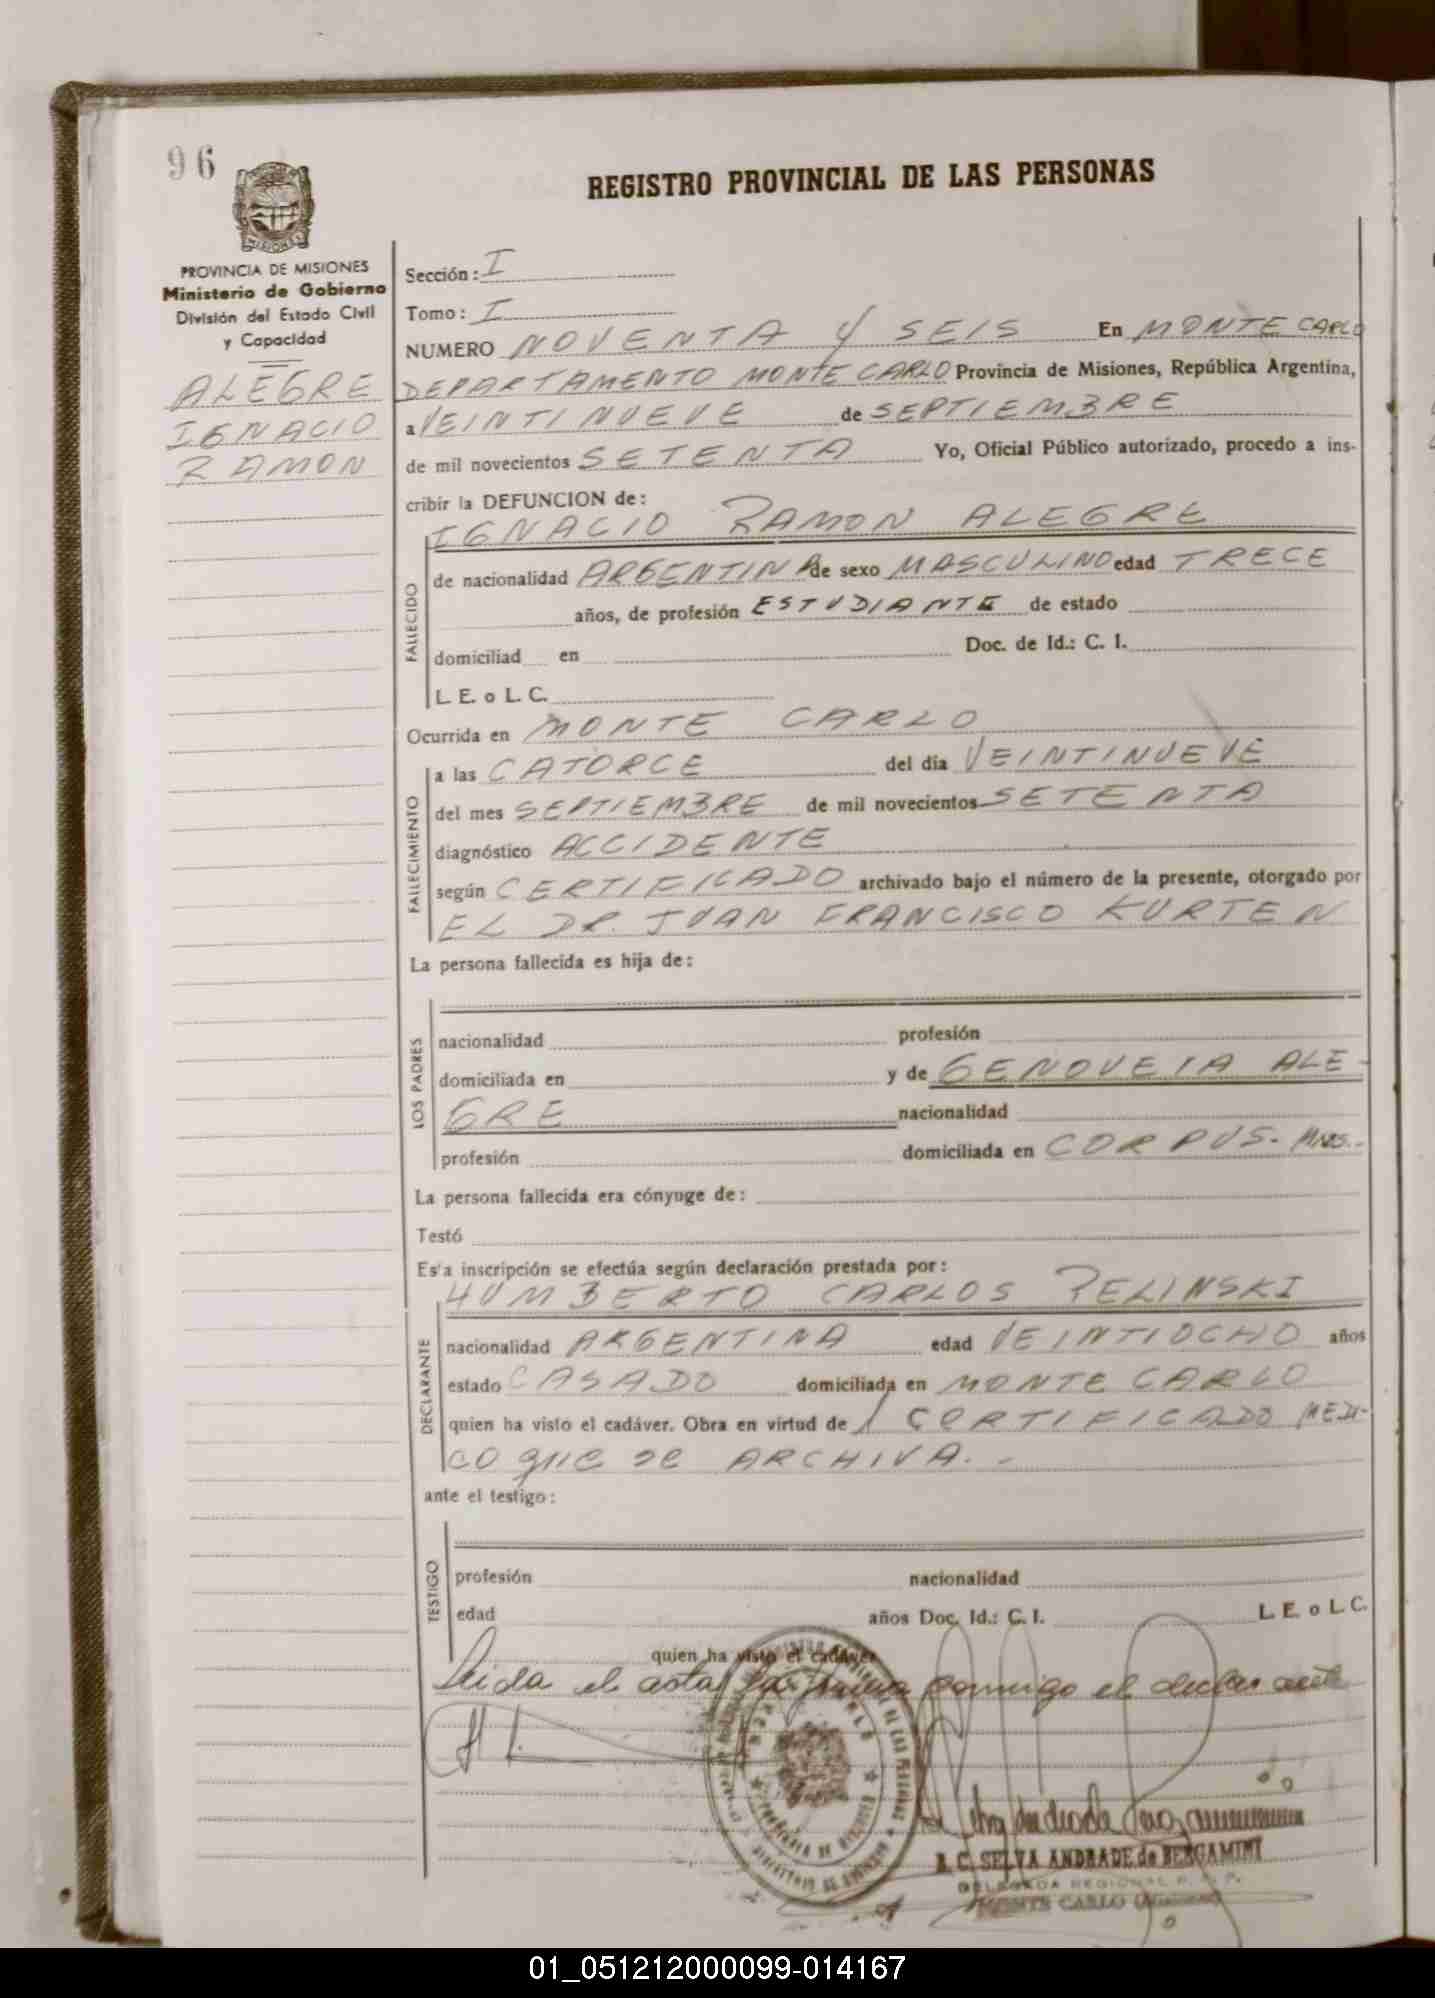 96
MISIONES
PROVINCIA DE MISIONES
Ministerio de Gobierno
División del Estado Civil
y Capacidad
ALEGRE
IGNACIO
RAMON
REGISTRO PROVINCIAL DE LAS PERSONAS
Sección: I
Tomo: I
NUMERO NOVENTA Y SEIS En MONTE CARLO
DEPARTAMENTO MONTE CARLO Provincia de Misiones, República Argentina,
a VEINTINUEVE de SEPTIEMBRE
de mil novecientos SETENTA Yo, Oficial Público autorizado, procedo a ins-
cribir la DEFUNCION de:
IGNACIO RAMON ALEGRE
FALLECIDO
de nacionalidad ARGENTINA de sexo MASCULINO edad TRECE
años, de profesión ESTUDIANTE de estado
domiciliad en Doc. de Id.: C. I.
L. E. o L. C.
Ocurrida en MONTE CARLO
FALLECIMIENTO
a las CATORCE del día VEINTINUEVE
del mes SEPTIEMBRE de mil novecientos SETENTA
diagnóstico ACCIDENTE
según CERTIFICADO archivado bajo el número de la presente, otorgado por
EL DR. JUAN FRANCISCO KURTEN
La persona fallecida es hija de:
LOS PADRES
nacionalidad profesión
domiciliada en y de GENOVEIA ALE-
GRE nacionalidad
profesión domiciliada en CORPUS. MNES.-
La persona fallecida era cónyuge de:
Testó
Es'a inscripción se efectúa según declaración prestada por:
HUMBERTO CARLOS PELINSKI
DECLARANTE
nacionalidad ARGENTINA edad VEINTIOCHO años
estado CASADO domiciliada en MONTE CARLO
quien ha visto el cadáver. Obra en virtud de CERTIFICADO MEDI-
CO que se ARCHIVA. -
ante el testigo:
TESTIGO
profesión nacionalidad
edad años Doc. Id.: C. I. L. E. o L. C.
quien ha visto el cadáver
Leida el acta la firma conmigo el declarante
B. C. SELVA ANDRADE de BERGAMINI
DELEGADA REGIONAL R. P. P.
MONTE CARLO (Misiones)
01_051212000099-014167